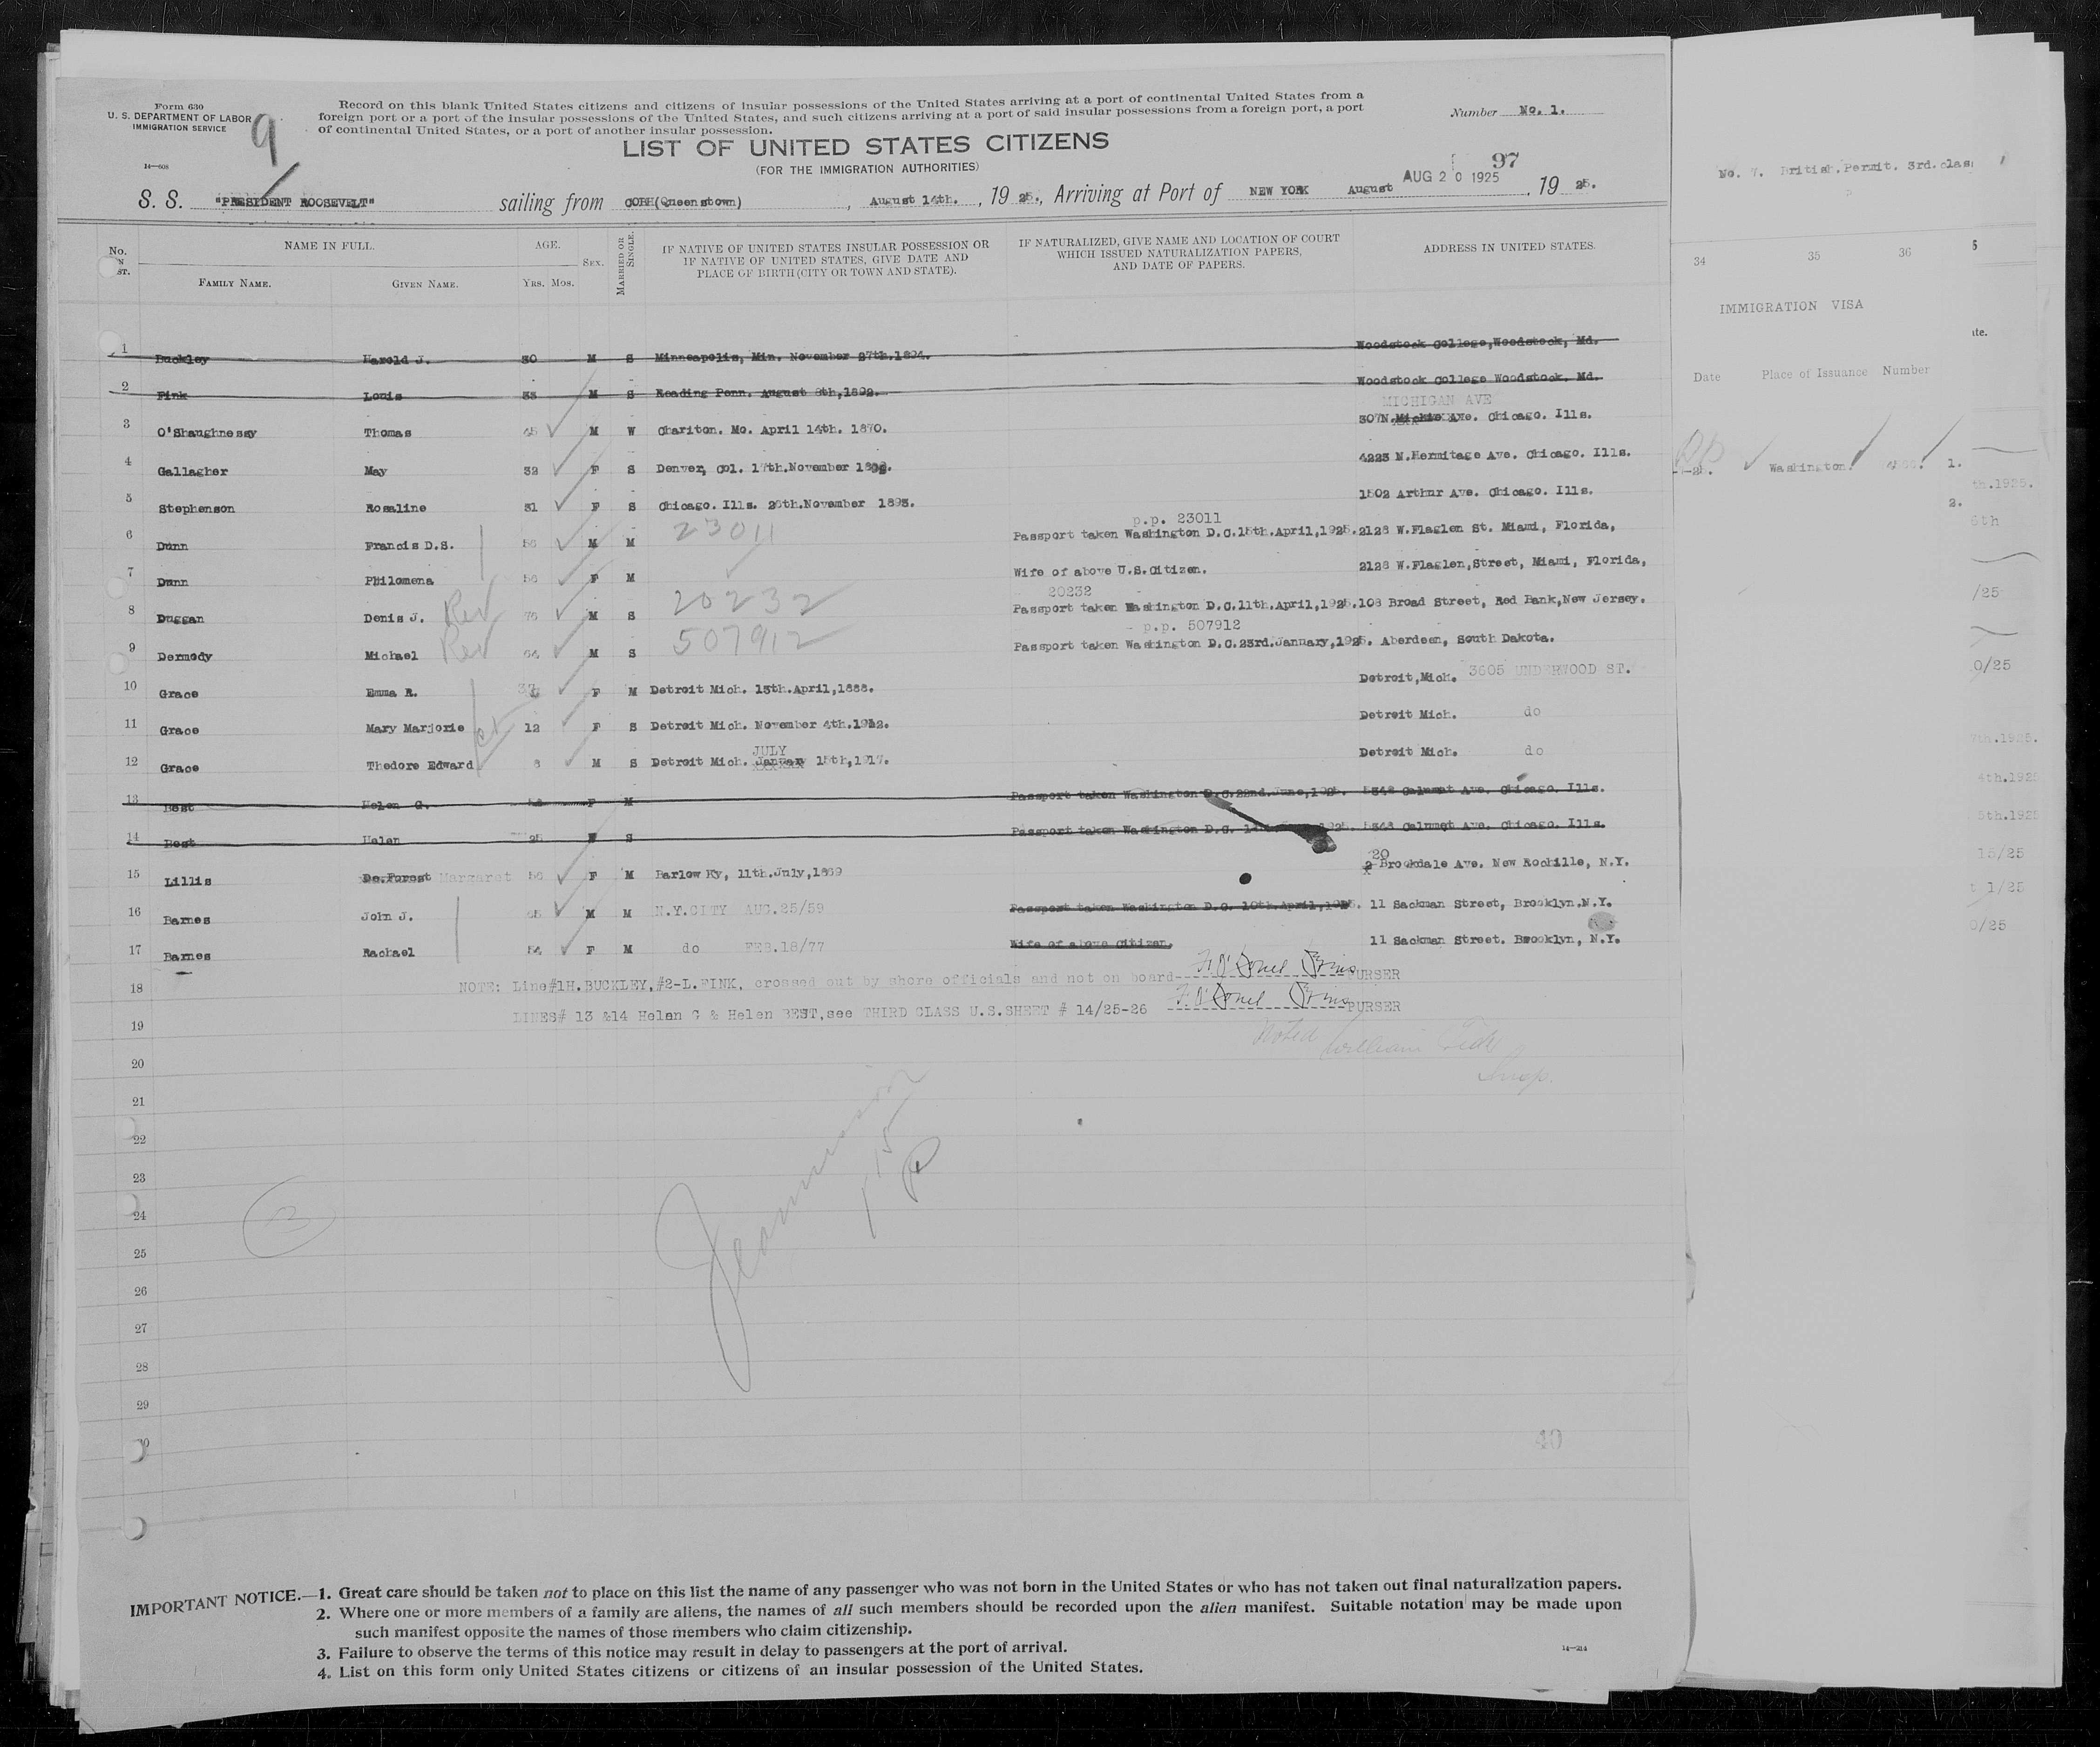 Form 630
U. S. DEPARTMENT OF LABOR
IMMIGRATION SERVICE
14—608
9
Record on this blank United States citizens and citizens of insular possessions of the United States arriving at a port of continental United States from a
foreign port or a port of the insular possessions of the United States, and such citizens arriving at a port of said insular possessions from a foreign port, a port
of continental United States, or a port of another insular possession.
Number No. 1.
LIST OF UNITED STATES CITIZENS
(FOR THE IMMIGRATION AUTHORITIES)
97
AUG 20 1925
S. S. "PRESIDENT ROOSEVELT" sailing from COBH(Queenstown), August 14th., 19 25., Arriving at Port of NEW YORK August, 19 25.
No. ON LIST. NAME IN FULL. AGE. SEX. MARRIED OR SINGLE. IF NATIVE OF UNITED STATES INSULAR POSSESSION OR IF NATIVE OF UNITED STATES, GIVE DATE AND PLACE OF BIRTH (CITY OR TOWN AND STATE). IF NATURALIZED, GIVE NAME AND LOCATION OF COURT WHICH ISSUED NATURALIZATION PAPERS, AND DATE OF PAPERS. ADDRESS IN UNITED STATES.
FAMILY NAME. GIVEN NAME. YRS. MOS.
1 Buckley Harold J. 30 M S Minneapolis, Min. November 27th.1894. Woodstock College,Woodstock, Md.
2 Fink Louis 33 M S Reading Penn. August 8th,1892. Woodstock College Woodstock. Md.
MICHIGAN AVE
3 O'Shaughnessy Thomas 45 M W Chariton. Mo. April 14th. 1870. 307N. Ave. Chicago. Ills.
4 Gallagher May 32 F S Denver, Col. 17th.November 1892. 4223 N.Hermitage Ave. Chicago. Ills.
5 Stephenson Rosaline 31 F S Chicago. Ills. 20th.November 1893. 1502 Arthur Ave. Chicago. Ills.
23011 p.p. 23011
6 Dunn Francis D.S. 56 M M Passport taken Washington D.C.15th.April,1925. 2128 W.Flaglen St. Miami, Florida,
7 Dunn Philomena 56 F M Wife of above U.S.Citizen. 2128 W.Flaglen,Street, Miami, Florida,
20232
8 Duggan Denis J. Rev 75 M S 20232 Passport taken Washington D.C.11th.April,1925. 108 Broad Street, Red Bank,New Jersey.
p.p. 507912
9 Dermody Michael Rev 64 M S 507912 Passport taken Washington D.C.23rd.January,1925. Aberdeen, South Dakota.
10 Grace Emma R. 37 F M Detroit Mich. 15th.April,1888. Detroit,Mich. 3605 UNDERWOOD ST.
11 Grace Mary Marjorie 12 F S Detroit Mich. November 4th.1912. Detroit Mich. do
JULY
12 Grace Thedore Edward 8 M S Detroit Mich. January 15th,1917. Detroit Mich. do
13 Best Helen G. F M Passport taken Washington D.C.22nd.June,1925. 5348 Calumet Ave. Chicago. Ills.
14 Best Helen 25 F S Passport taken Washington D.C. 1925. 5348 Calumet Ave. Chicago. Ills.
20
15 Lillis De.Forest Margaret 56 F M Barlow Ky, 11th.July,1869 2 Brookdale Ave. New Rochille, N.Y.
16 Barnes John J. 65 M M N.Y.CITY AUG.25/59 Passport taken Washington D.C. 10th.April,1925. 11 Sackman Street, Brooklyn.N.Y.
17 Barnes Rachael 54 F M do FEB.18/77 Wife of above Citizen. 11 Sackman Street. Brooklyn, N.Y.
18 NOTE: Line#1H.BUCKLEY,#2-L.FINK, crossed out by shore officials and not on board PURSER
19 LINES# 13 &14 Helen G & Helen BEST,see THIRD CLASS U.S.SHEET # 14/25-26 PURSER
Noted William
Insp.
20
21
22
23
24
25
26
27
28
29
30
40
IMPORTANT NOTICE.—1. Great care should be taken not to place on this list the name of any passenger who was not born in the United States or who has not taken out final naturalization papers.
2. Where one or more members of a family are aliens, the names of all such members should be recorded upon the alien manifest. Suitable notation may be made upon
such manifest opposite the names of those members who claim citizenship.
3. Failure to observe the terms of this notice may result in delay to passengers at the port of arrival.
4. List on this form only United States citizens or citizens of an insular possession of the United States.
14—214
No. 7. British.Permit. 3rd.class
34 35 36
IMMIGRATION VISA
Date Place of Issuance Number
Washington. 1.
2.
th.1925.
6th
/25
0/25
7th.1925.
4th.1925
5th.1925
15/25
1/25
0/25